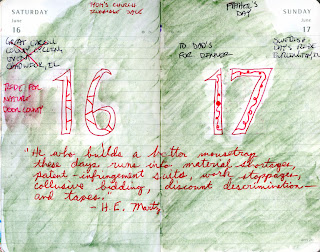 SATURDAY
JUNE
16
MOM'S CHURCH
RUMMAGE SALE
GREAT
EVENT
GRAYSLAKE, IL
RIDE FOR
NATURE
DOOR COUNTY
16
FATHER'S
DAY
SUNDAY
JUNE
17
TO DAD'S
FOR DINNER
BURLINGTON, IL
17
"He who builds a better mousetrap
these days runs into material shortages,
patent-infringement suits, work stoppages,
collusive bidding, discount discrimination—
and taxes."
- H.E. Martz